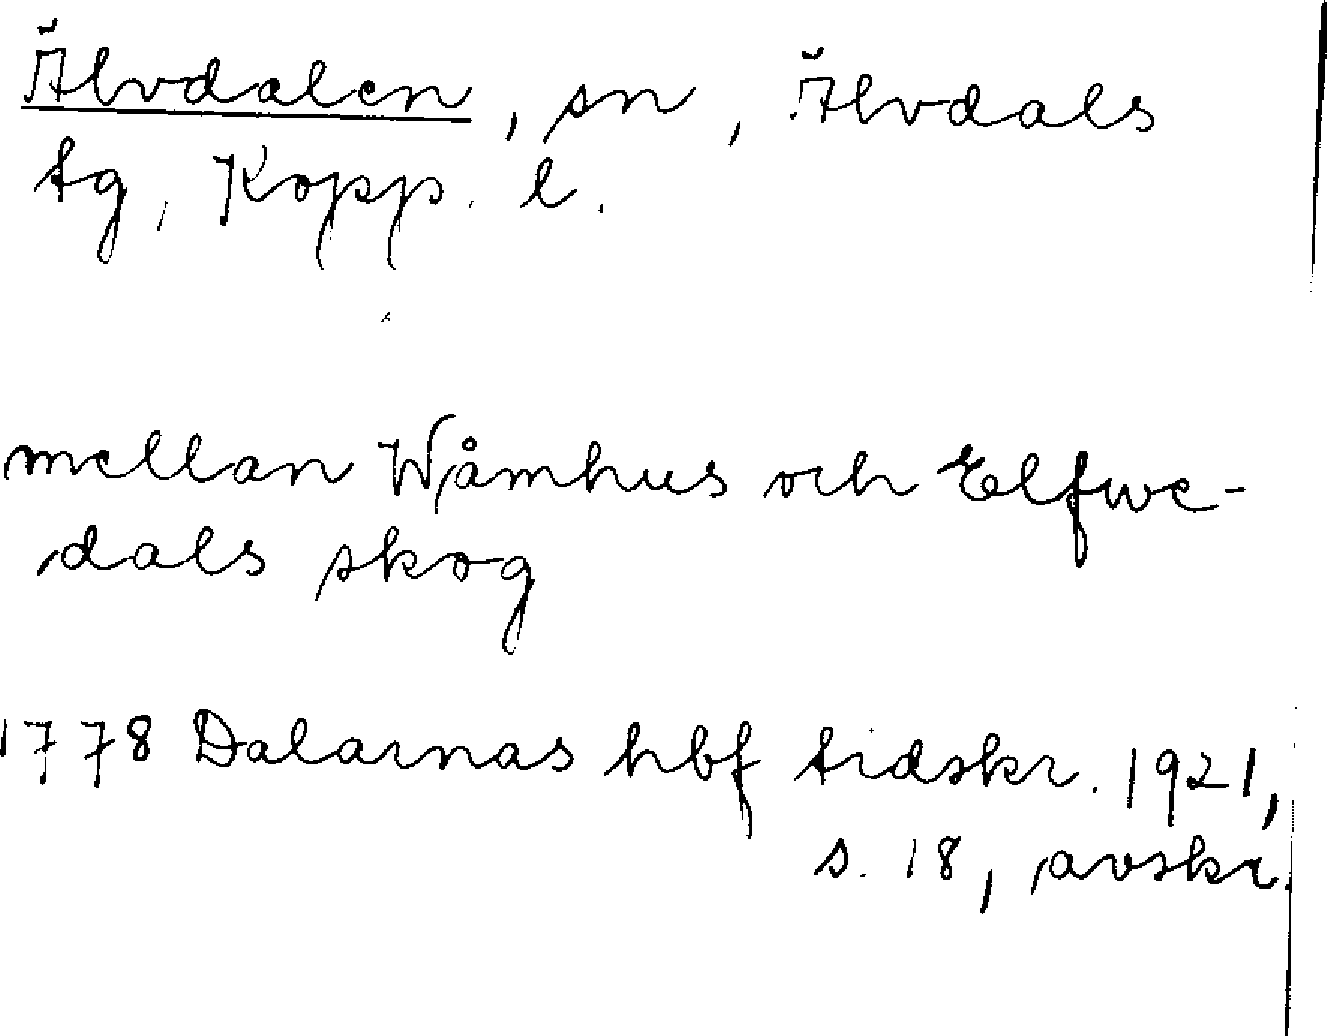 Älvdalen, sn, Älvdals
tg, Kopp. l.
mellan Wåmhus och Elfwe-
dals skog
1778 Dalarnas hbf tidskr. 1921,
s. 18, avskr.